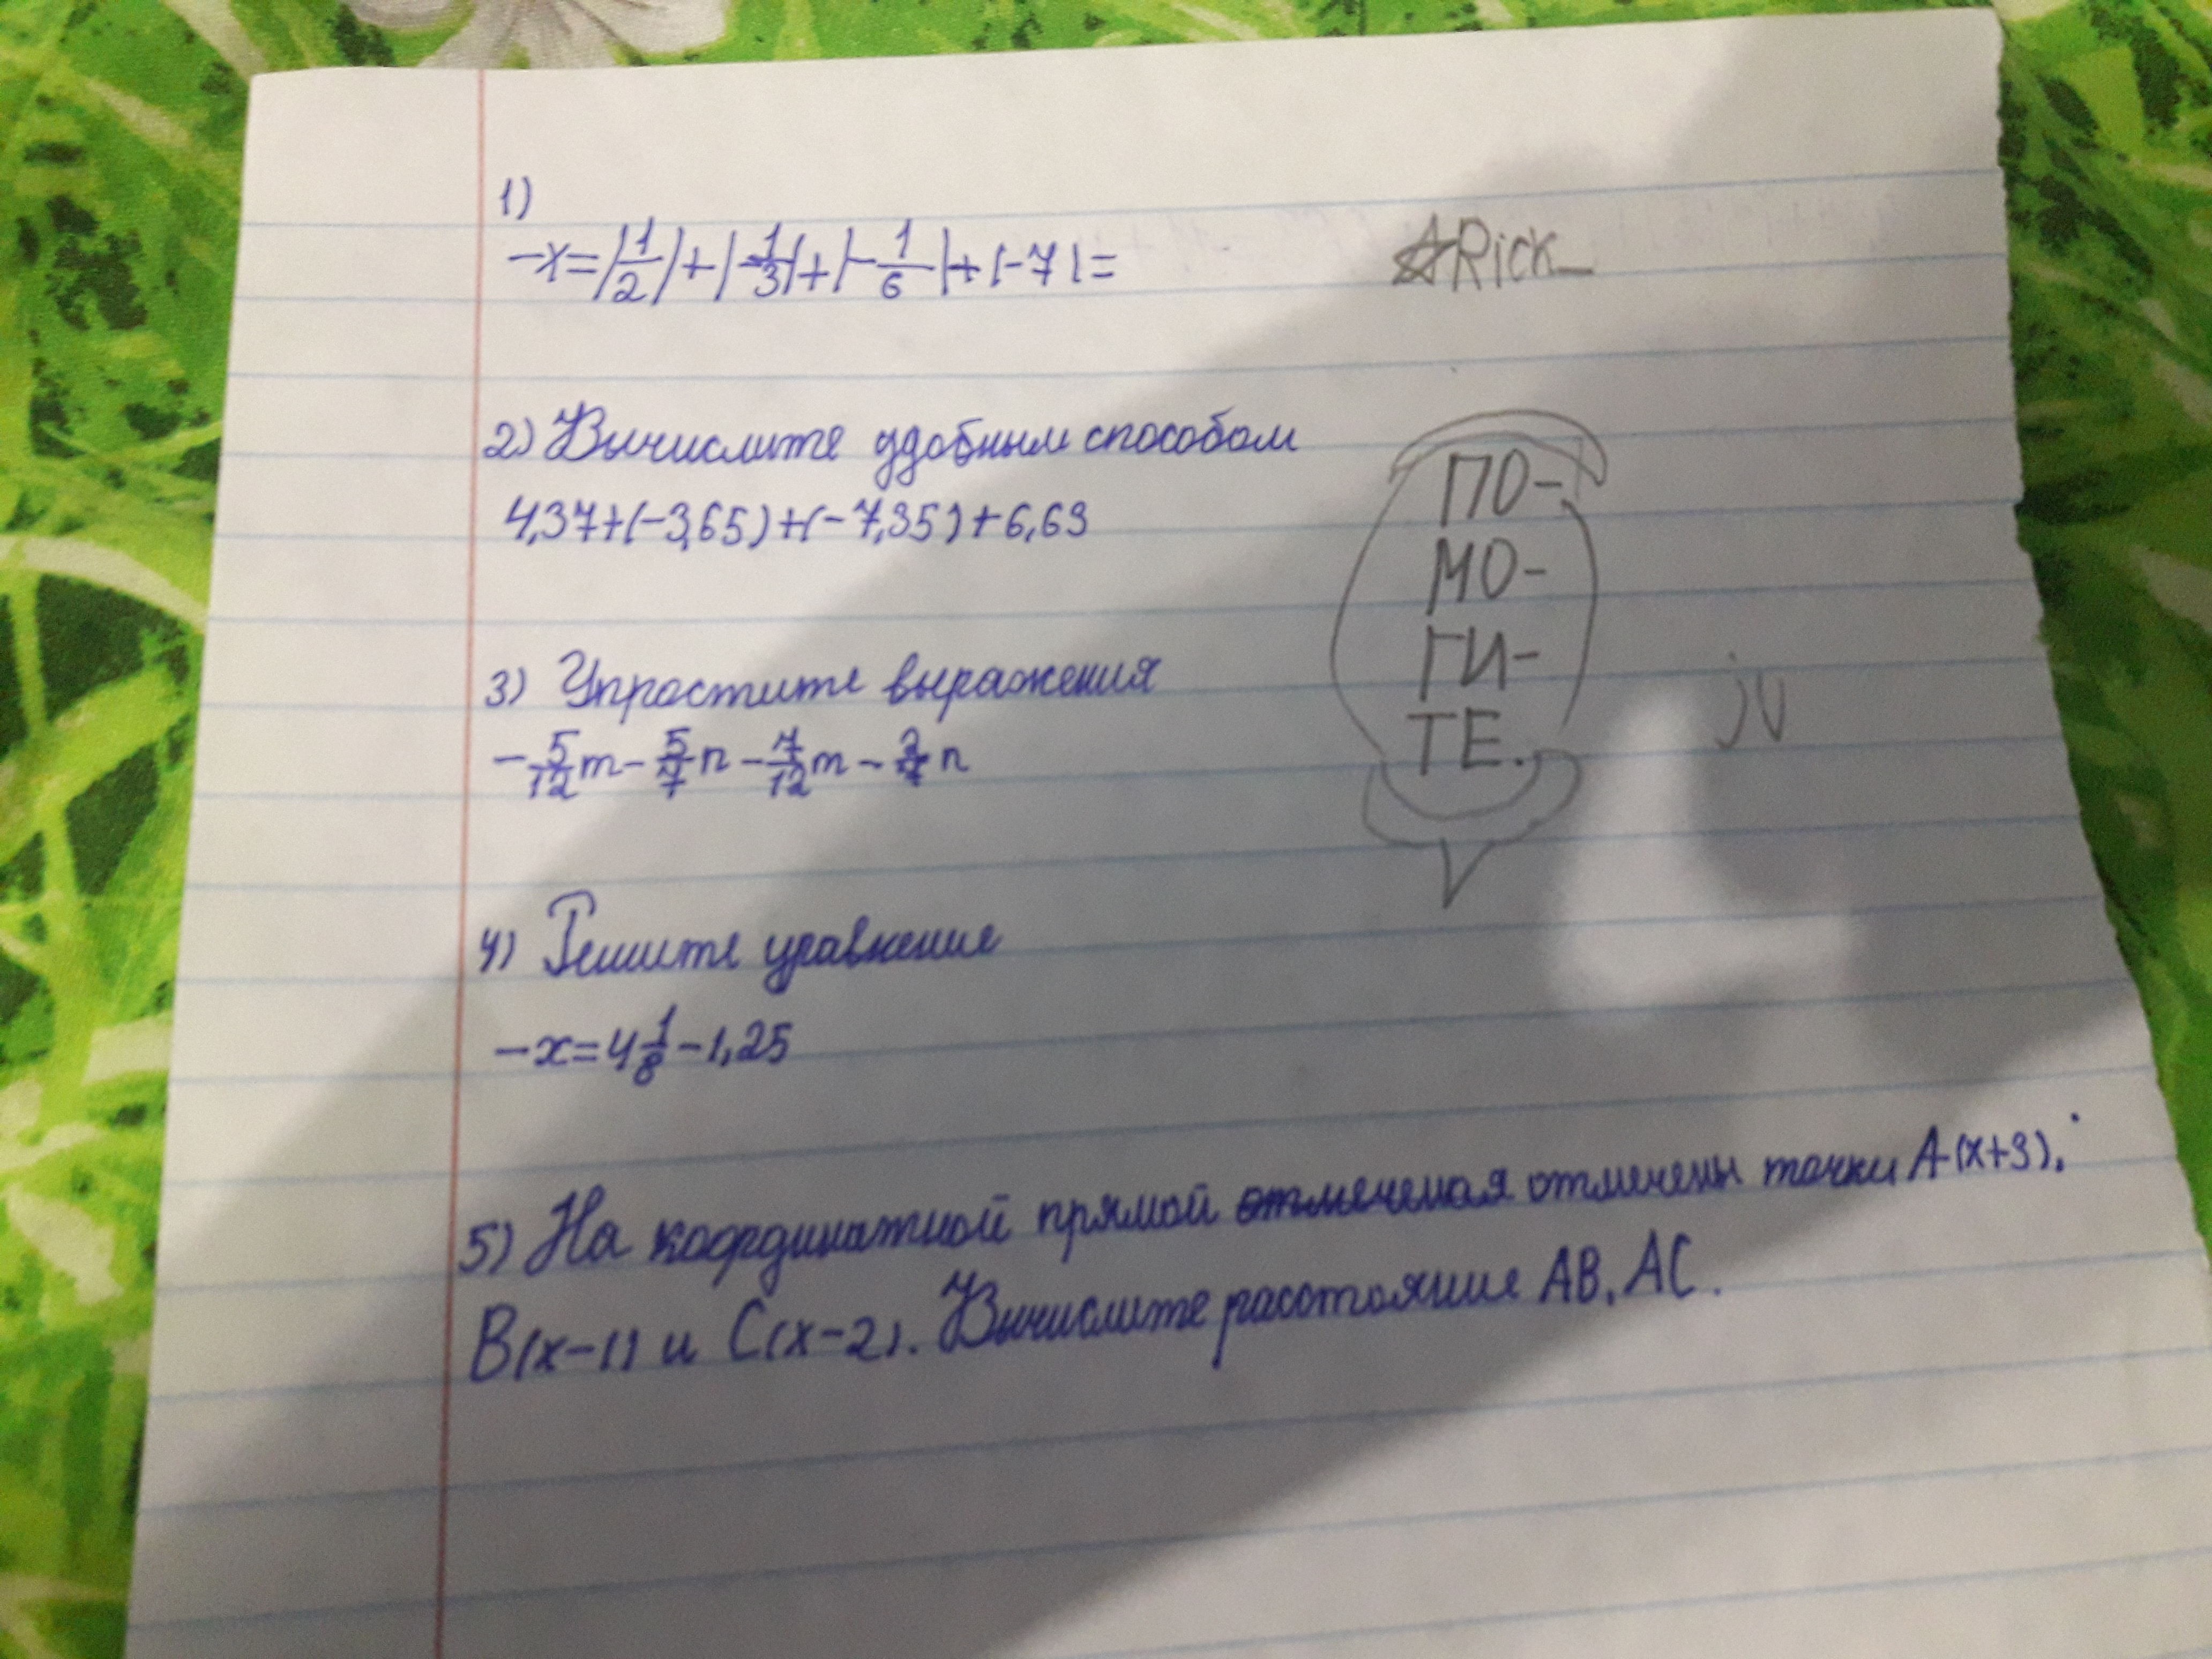 1)
-x=|1/2|+|-1/3|+|-1/6|+|-7|=
Rick_
2) Вычислите удобным способом
4,37+(-3,65)+(-7,35)+6,63
ПО-
МО-
ГИ-
ТЕ.
3) Упростите выражения
-5/12m-5/7n-7/12m-2/7n
4) Решите уравнение
-x=4 1/8-1,25
5) На координатной прямой отмечены точки A(x+3),
B(x-1) и C(x-2). Вычислите расстояние AB, AC.